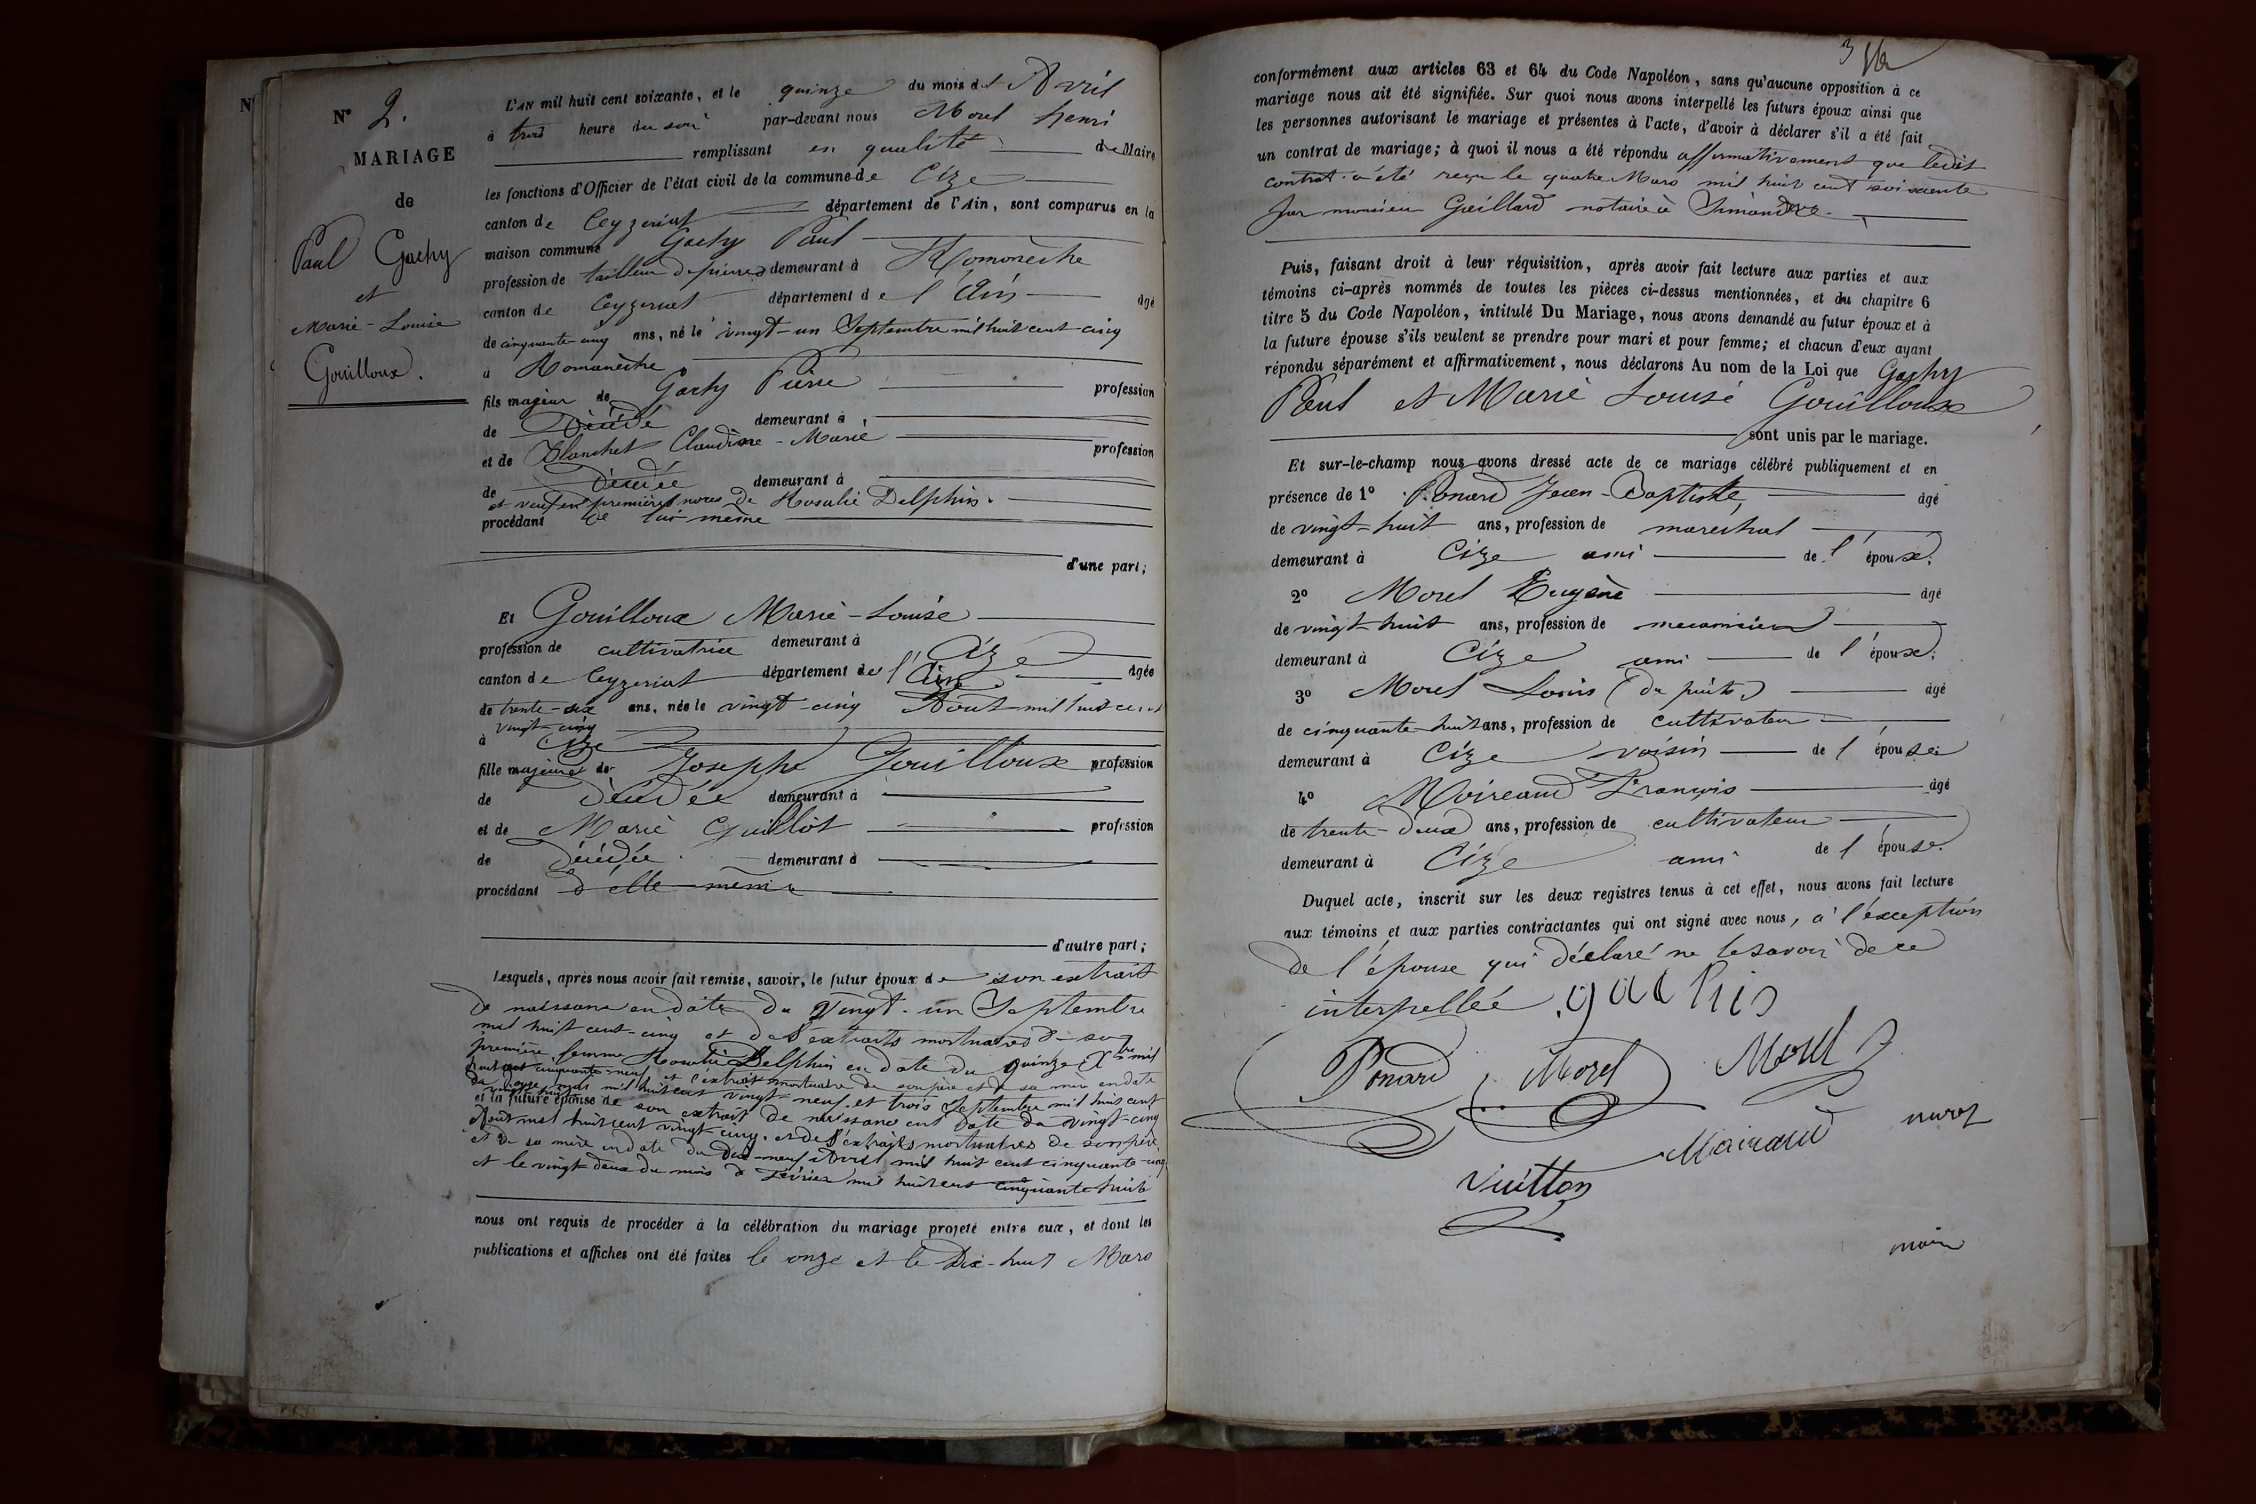 N
N° 2.
MARIAGE
de
Paul Gachy
et
Marie-Louise
Gouilloux.
L'AN mil huit cent soixante, et le quinze du mois d' Avril
à trois heure du soir par-devant nous Morel henri
remplissant en qualité de Maire
les fonctions d'Officier de l'état civil de la commune de Cize
canton de Ceyzeriat département de l'Ain, sont comparus en la
maison commune Gachy Paul
profession de tailleur de pierres demeurant à Romanèche
canton de Ceyzeriat département de l'Ain âgé
de cinquante-cinq ans, né le vingt-un Septembre mil huit cent cinq
à Romanèche
fils majeur de Gachy Pierre profession
de Décédé demeurant à
et de Blanchet Claudine-Marie profession
de Décédée demeurant à
et veuf en premières noces de Rosalie Delphin.
procédant de lui-même
d'une part;
Et Gouilloux Marie-Louise
profession de cultivatrice demeurant à Cize
canton de Ceyzeriat département de l'Ain âgée
de trente-six ans, née le vingt-cinq Aout mil huit cent
vingt-cinq
à Cize
fille majeure de Joseph Gouilloux profession
de décédé demeurant à
et de Marie Guillot profession
de décédée demeurant à
procédant d'elle-même
d'autre part;
Lesquels, après nous avoir fait remise, savoir, le futur époux de son extrait
de naissance en date du vingt-un Septembre
mil huit cent-cinq et des extraits mortuaires de sa
première femme Rosalie Delphin en date du quinze Xbre mil
huit cent cinquante-neuf et l'extrait mortuaire de son père et de sa mère en date
du mai mil huit cent vingt-neuf et trois Septembre mil huit cent
vingt-huit
et la future épouse de son extrait de naissance en date du vingt-cinq
Aout mil huit cent vingt-cinq. et des extraits mortuaires de son père
et de sa mère en date du dix-neuf Avril mil huit cent cinquante-cinq
et le vingt deux du mois de Février mil huit cent cinquante huit
nous ont requis de procéder à la célébration du mariage projeté entre eux, et dont les
publications et affiches ont été faites le onze et le Dix-huit Mars
conformément aux articles 63 et 64 du Code Napoléon, sans qu'aucune opposition à ce
mariage nous ait été signifiée. Sur quoi nous avons interpellé les futurs époux ainsi que
les personnes autorisant le mariage et présentes à l'acte, d'avoir à déclarer s'il a été fait
un contrat de mariage; à quoi il nous a été répondu affirmativement que ledit
contrat a été reçu le quatre Mars mil huit cent soixante
par monsieur Gaillard notaire à Simandre.
Puis, faisant droit à leur réquisition, après avoir fait lecture aux parties et aux
témoins ci-après nommés de toutes les pièces ci-dessus mentionnées, et du chapitre 6
titre 5 du Code Napoléon, intitulé Du Mariage, nous avons demandé au futur époux et à
la future épouse s'ils veulent se prendre pour mari et pour femme; et chacun d'eux ayant
répondu séparément et affirmativement, nous déclarons Au nom de la Loi que Gachy
Paul et Marie Louise Gouilloux
sont unis par le mariage.
Et sur-le-champ nous avons dressé acte de ce mariage célébré publiquement et en
présence de 1° Ponard Jean-Baptiste, âgé
de vingt-huit ans, profession de marechal
demeurant à Cize ami de l'épouse.
2° Morel Eugène âgé
de vingt-huit ans, profession de mecanicien
demeurant à Cize ami de l'épouse.
3° Morel Louis (du puits) âgé
de cinquante-huit ans, profession de cultivateur
demeurant à Cize voisin de l'épouse.
4° Moiraud François âgé
de trente-deux ans, profession de cultivateur
demeurant à Cize ami de l'épouse.
Duquel acte, inscrit sur les deux registres tenus à cet effet, nous avons fait lecture
aux témoins et aux parties contractantes qui ont signé avec nous, à l'exception
de l'épouse qui déclaré ne le savoir de ce
interpellée. gachis
Ponard Morel Morel
Moiraud
Vuitton